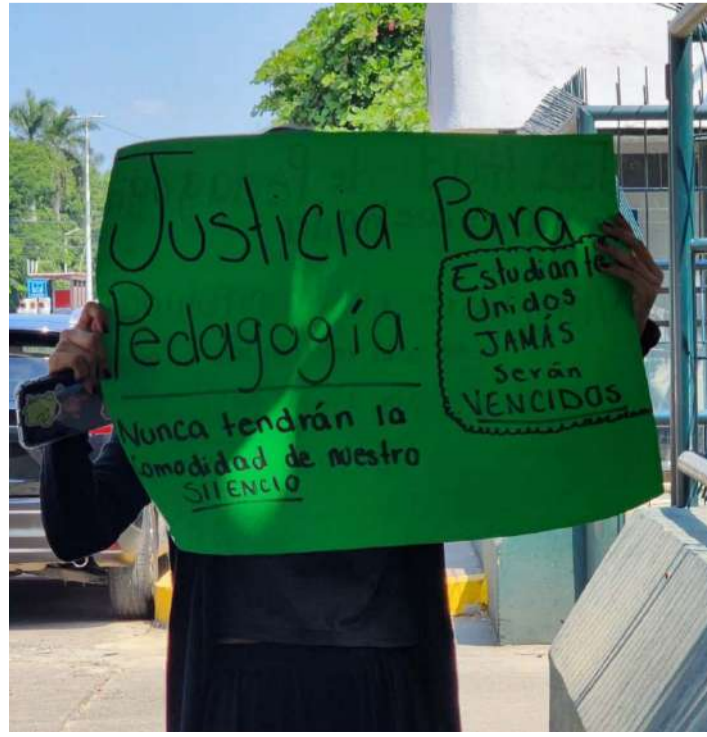 Justicia Para
Pedagogía.
Nunca tendrán la
comodidad de nuestro
SILENCIO
Estudiante
Unidos
JAMÁS
serán
VENCIDOS